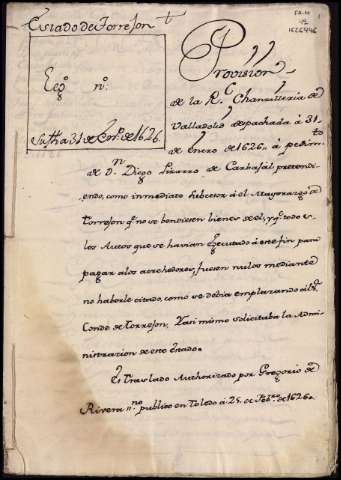 Estado de Torrejon
Leg.º n.º
Su fha 31 de En.º de 1626
Provision
de la R.l Chanzilleria de
Valladolid despachada â 31
de Enero de 1626. â pedim.to
de D.n Diego Pizarro de Carbajal pretendi-
endo, como inmediato subcesor â el Mayorazgo de
Torrejon q.e no se vendiesen bienes de el, y q.e todos
los Autos que se havian executado â este fin para
pagar alos acrehedores, fuesen nulos mediante
no haberle citado, como se debia emplazando âl
Conde de Torrejon. Y asimismo solicitaba la Admi-
nistracion de este Estado.
Es traslado Authorizado por Gregorio de
Rivera no.º publico en Toledo â 25. de Feb.ro de 1626.